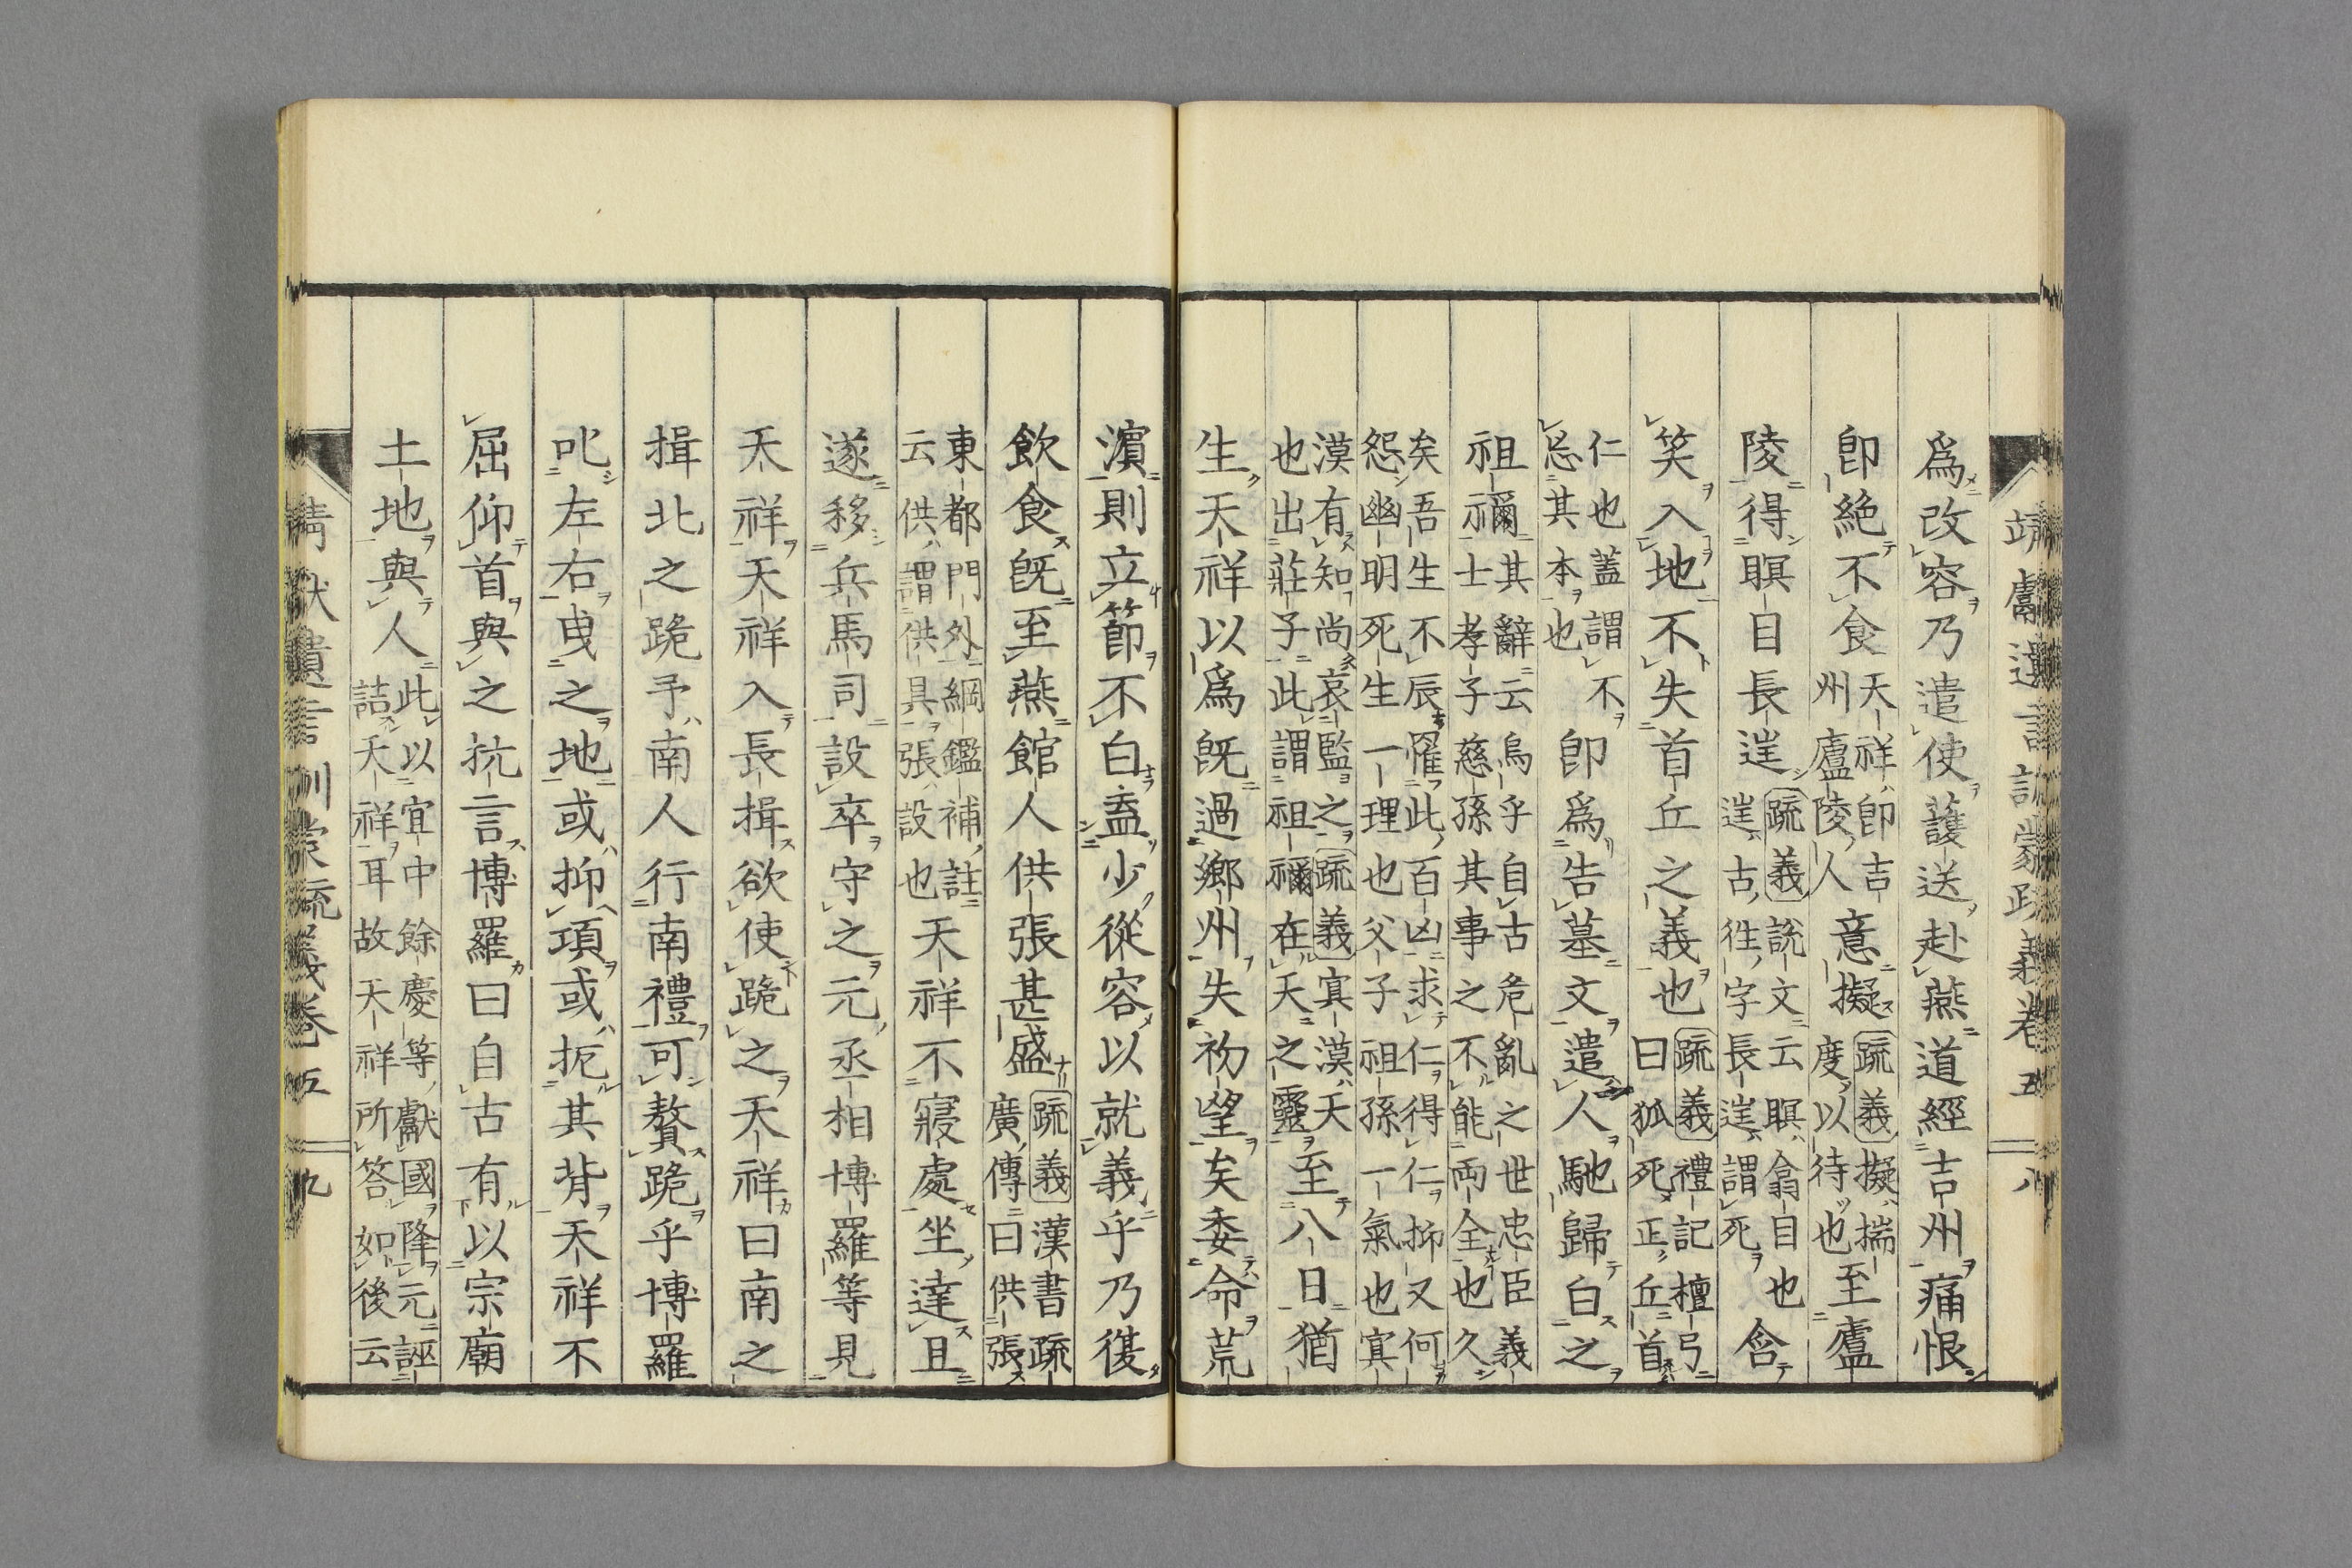 靖獻遺言訓蒙疏義卷五 八
爲改容乃遣使護送赴燕道經吉州痛恨
卽絶不食天祥卽吉州廬陵人意擬疏義擬揣度以待也至廬
陵得瞑目長逞疏義説文云瞑翕目也逞古徃字長逞謂死含
笑入地不失首丘之義也疏義禮記檀弓曰狐死正丘首
仁也蓋謂不忘其本也卽爲告墓文遣人馳歸白之
祖禰其辭云烏乎自古危亂之世忠臣義士孝子慈孫其事之不能兩全也久
矣吾生不辰罹此百凶求仁得仁抑又何怨幽明死生一理也父子祖孫一氣也冥
漠有知尚哀監之疏義冥漠天也出莊子此謂祖禰在天之靈至八日猶
生天祥以爲旣過鄉州失初望矣委命荒
濵則立節不白盍少從容以就義乎乃復
飲食旣至燕館人供張甚盛疏義漢書疏廣傳曰供張
東都門外綱鑑補註云供謂供具張設也天祥不寢處坐達旦
遂移兵馬司設卒守之元丞相博羅等見
天祥天祥入長揖欲使跪之天祥曰南之
揖北之跪予南人行南禮可贅跪乎博羅
叱左右曳之地或抑項或扼其背天祥不
屈仰首與之抗言博羅曰自古有以宗廟
土地與人此以宜中餘慶等獻國降元誣詰天祥耳故天祥所答如後云
靖獻遺言訓蒙疏義卷五 九